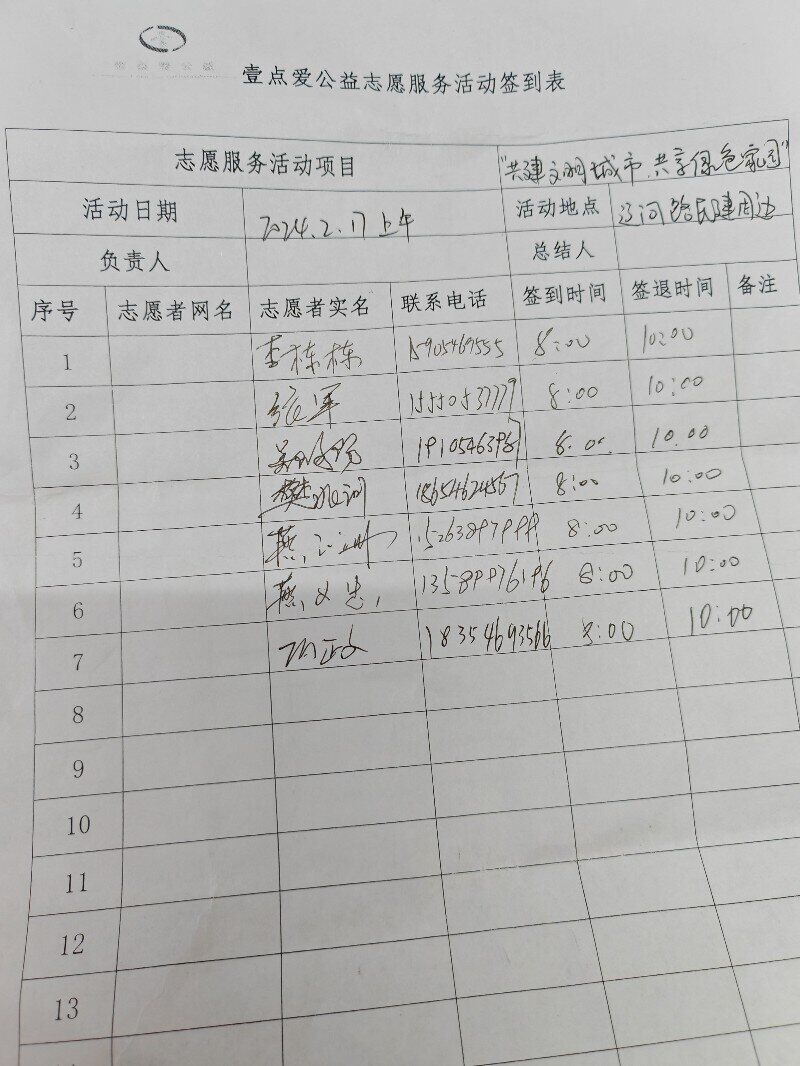 壹点爱公益
壹点爱公益志愿服务活动签到表
志愿服务活动项目 "共建文明城市.共享绿色家园"
活动日期 2024.2.17上午 活动地点 辽河路民建周边
负责人 总结人
序号 志愿者网名 志愿者实名 联系电话 签到时间 签退时间 备注
1 李栋栋 15905469555 8:00 10:00
2 张军 15550537779 8:00 10:00
3 8:00. 10.00
4 樊 18654624567 8:00 10:00
5 燕 8:00 10:00
6 燕义忠, 8:00 10:00
7 18354693566 8:00 10:00
8
9
10
11
12
13